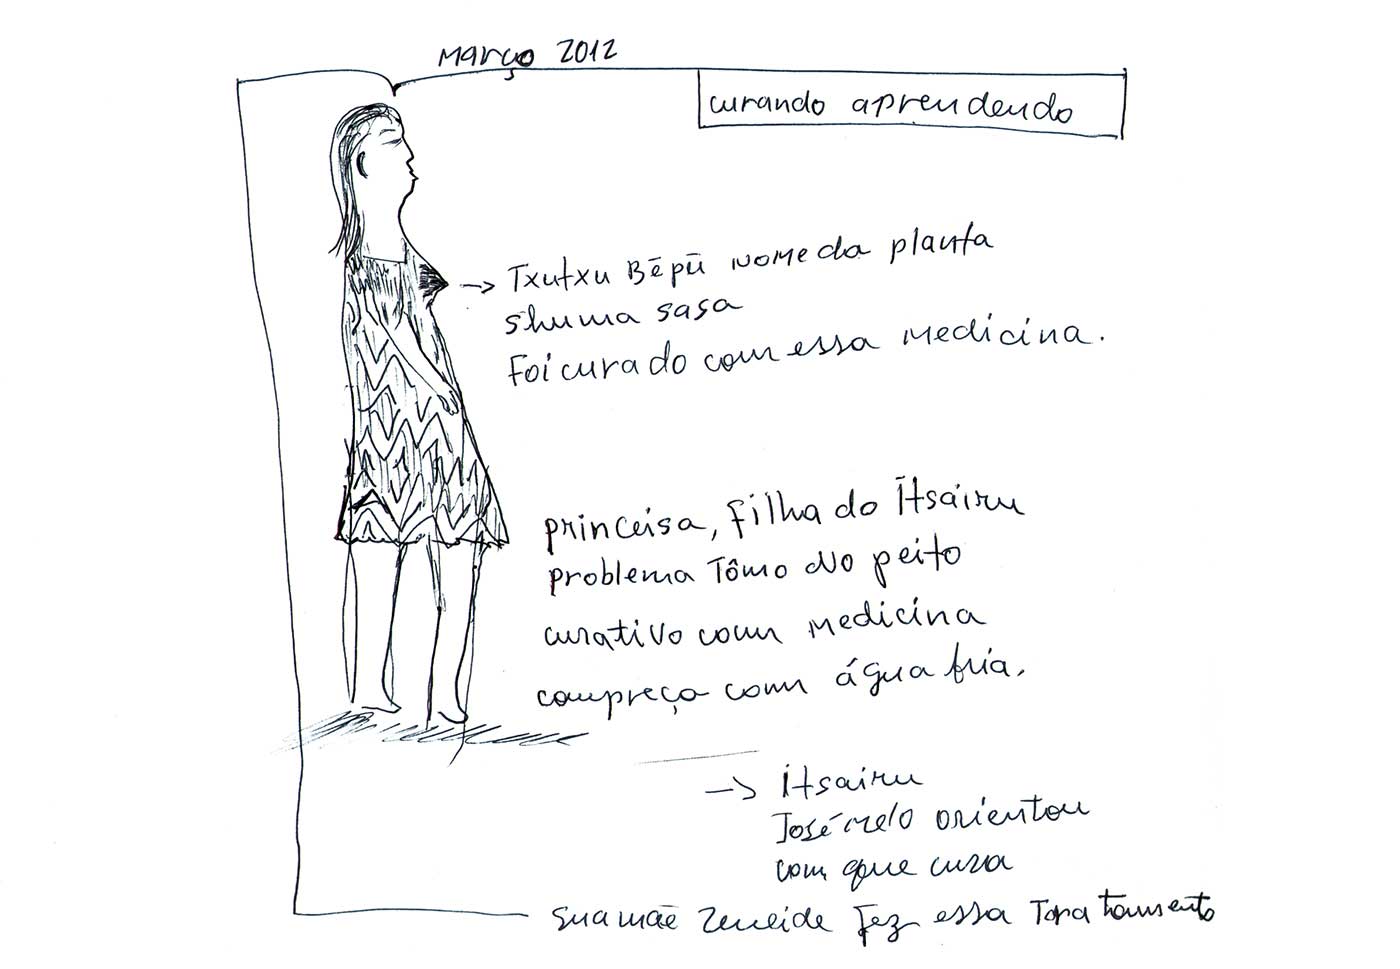 Março 2012
curando aprendendo
Txutxu Bēpū nome da planta
shuma sasa
Foi curado com essa medicina.
princeisa, filha do Ītsairu
problema Tômo no peito
curativo com medicina
compreço com água fria.
Itsairu
José Melo orientou
com que cura
sua mãe Zeneide fez essa